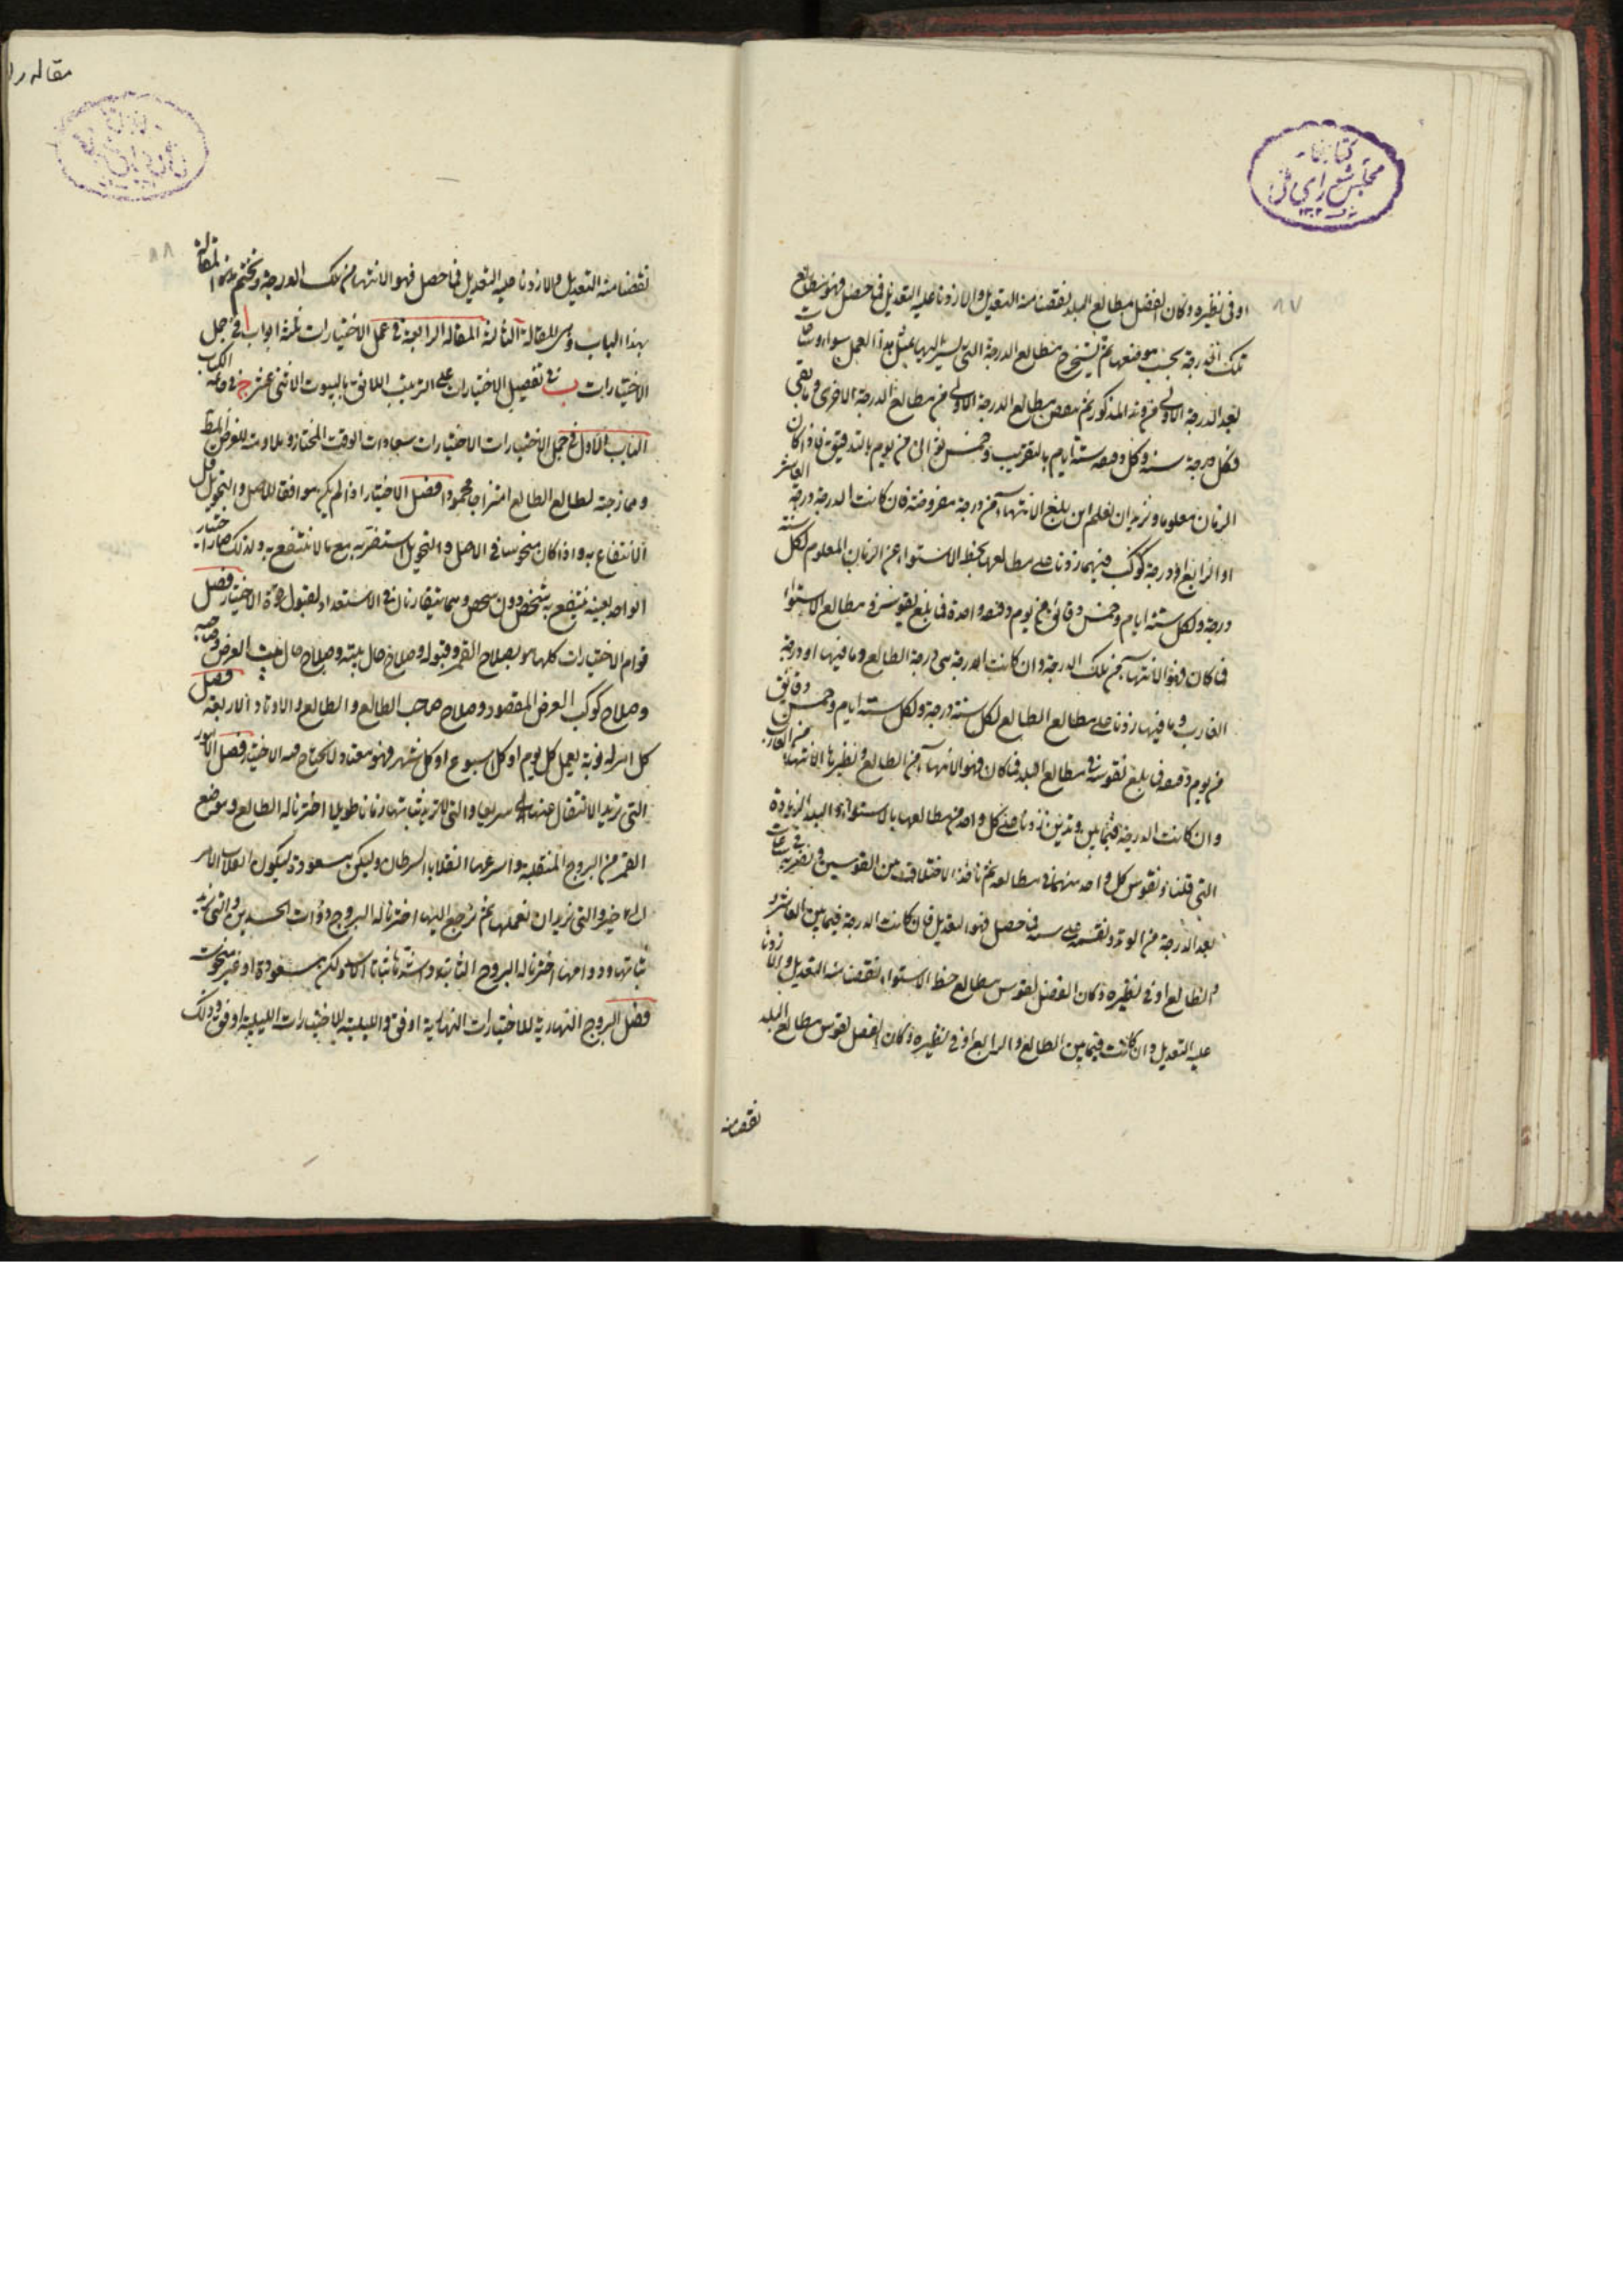 كتابخانه
مجلس شورای ملی
١٣٠٢
٨٧
او فى نظيره وكان الفضل لمطالع البلد نقصنا منه التعديل والا زدنا عليه التعديل فما حصل فهو مطالع
تلك الدرجة بحسب موضعها ثم يستخرج مطالع الدرجة التى يسير اليها بمثل هذا العمل سواء وساعات
بعد الدرجة الاولى من وتد المذكور ثم ينقص مطالع الدرجة الاولى من مطالع الدرجة الاخرى وما بقى
فلكل درجة سنة ولكل دقيقة ستة ايام بالتقريب وخمس ثوانى من يوم بالتدقيق فاذا كان
الزمان معلوما ونريد ان نعلم اين بلغ الانتهاء من درجة مفروضة فان كانت الدرجة درجة العاشر
او الرابع او درجة كوكب فيهما زدنا على مطالعها بخط الاستواء عن الزمان المعلوم لكل سنة
درجة ولكل ستة ايام وخمس دقائق من يوم دقيقة واحدة فما بلغ نقوسه فى مطالع الاستواء
فما كان فهو الانتهاء من تلك الدرجة وان كانت الدرجة هى درجة الطالع وما فيها او درجة
الغارب وما فيها زدنا على مطالع الطالع لكل سنة درجة ولكل ستة ايام وخمس دقائق
من يوم دقيقة فما بلغ نقوسه فى مطالع البلد فما كان فهو الانتهاء من الطالع ونظيرها الانتهاء من الغارب
وان كانت الدرجة فيما بين وتدين زدنا على كل واحد من مطالعها بالاستواء والبلد الزيادة
التى قلنا ونقوس كل واحد منهما فى مطالعه ثم نأخذ الاختلاف بين القوسين فنضربه فى ساعات
بعد الدرجة من الوتد ونقسمه على ستة فما حصل فهو التعديل فان كانت الدرجة فيما بين العاشر
والطالع او فى نظيره وكان الفضل لقوس مطالع خط الاستواء نقصنا منه التعديل والا زدنا
عليه التعديل وان كانت فيما بين الطالع والرابع او فى نظيره وكان الفضل لقوس مطالع البلد
نقصنا منه
مقاله را
٨٨
نقصنا منه التعديل والا زدنا عليه التعديل فما حصل فهو الانتهاء من تلك الدرجة ونختم هذه المقالة
بهذا الباب وهى المقالة الثالثة المقالة الرابعة فى عمل الاختيارات ثلثة ابواب ا فى جمل
الاختيارات ب فى تفصيل الاختيارات على الترتيب اللائق بالبيوت الاثنى عشر ج فى خاتمة الكتاب
الباب الاول فى جمل الاختيارات الاختيارات سعادات الوقت المختار وملاومته للغرض المطلوب
وممازجته لطالع الطالع امتزاجا محمودا فصل الاختيار اذا لم يكن موافقا للاصل والتحويل قل
الانتفاع به واذا كان منحوسا فى الاصل والتحويل استضر به مع ما لا ينتفع به ولذلك صار الاختيار
الواحد بعينه ينتفع به شخص دون شخص وهما يتقاربان فى الاستعداد لقبول قوة الاختيار فصل
قوام الاختيارات كلها هو بصلاح القمر وقبوله وصلاح حال بيته وصلاح حال بيت الغرض وصاحبه
وصلاح كوكب الغرض المقصود وصلاح صاحب الطالع والطالع والاوتاد الاربعة فصل
كل امر له نوبة يعمل كل يوم او كل اسبوع او كل شهر فهو معتاد لا يحتاج فيه الاختيار فصل الامور
التى نريد الانتقال عنها سريعا والتى لا نريد ثباتها زمانا طويلا اخترنا له الطالع وموضع
القمر من البروج المنقلبة واسرعها انقلابا السرطان وليكن مسعودة ليكون انقلاب الامر
الى خير والتى نريد ان نعملها ثم نرجع اليها اخترنا له البروج ذوات الجسدين والتى نريد
ثباتها ودوامها اخترنا له البروج الثابتة واشدها ثباتا الاسد ولكن مسعودة او غير منحوسة
فصل البروج النهارية للاختيارات النهارية اوفق والليلية للاختيارات الليلية اوفق وذلك